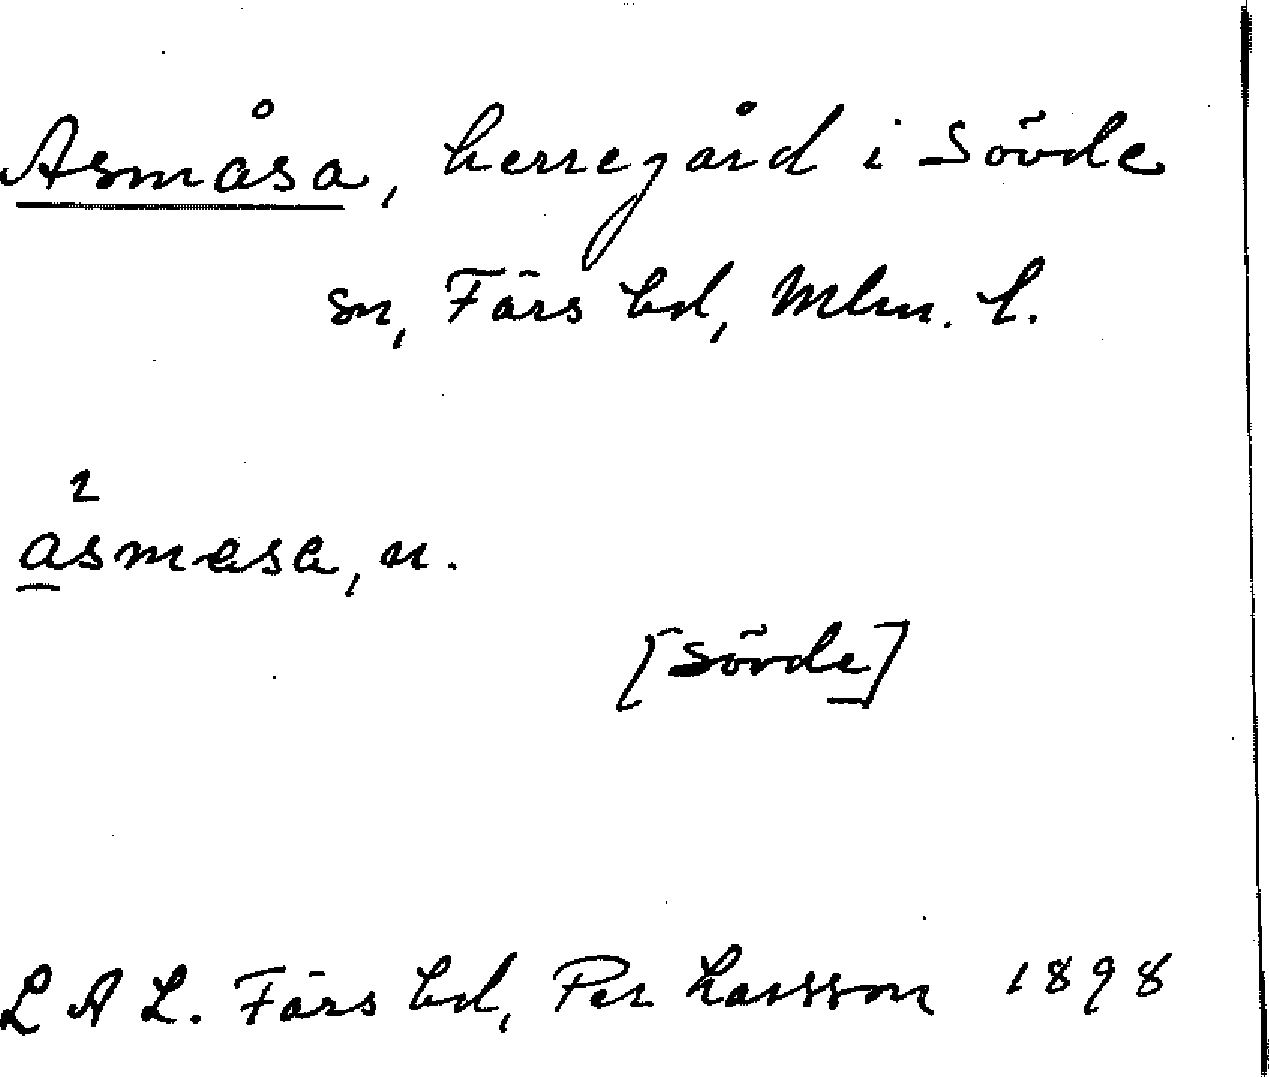 Asmåsa, herregård i Sövde
sn, Färs hd, Mlm. l.
2
asmasa, n.
[Sövde]
L A L. Färs hd, Per Larsson 1898